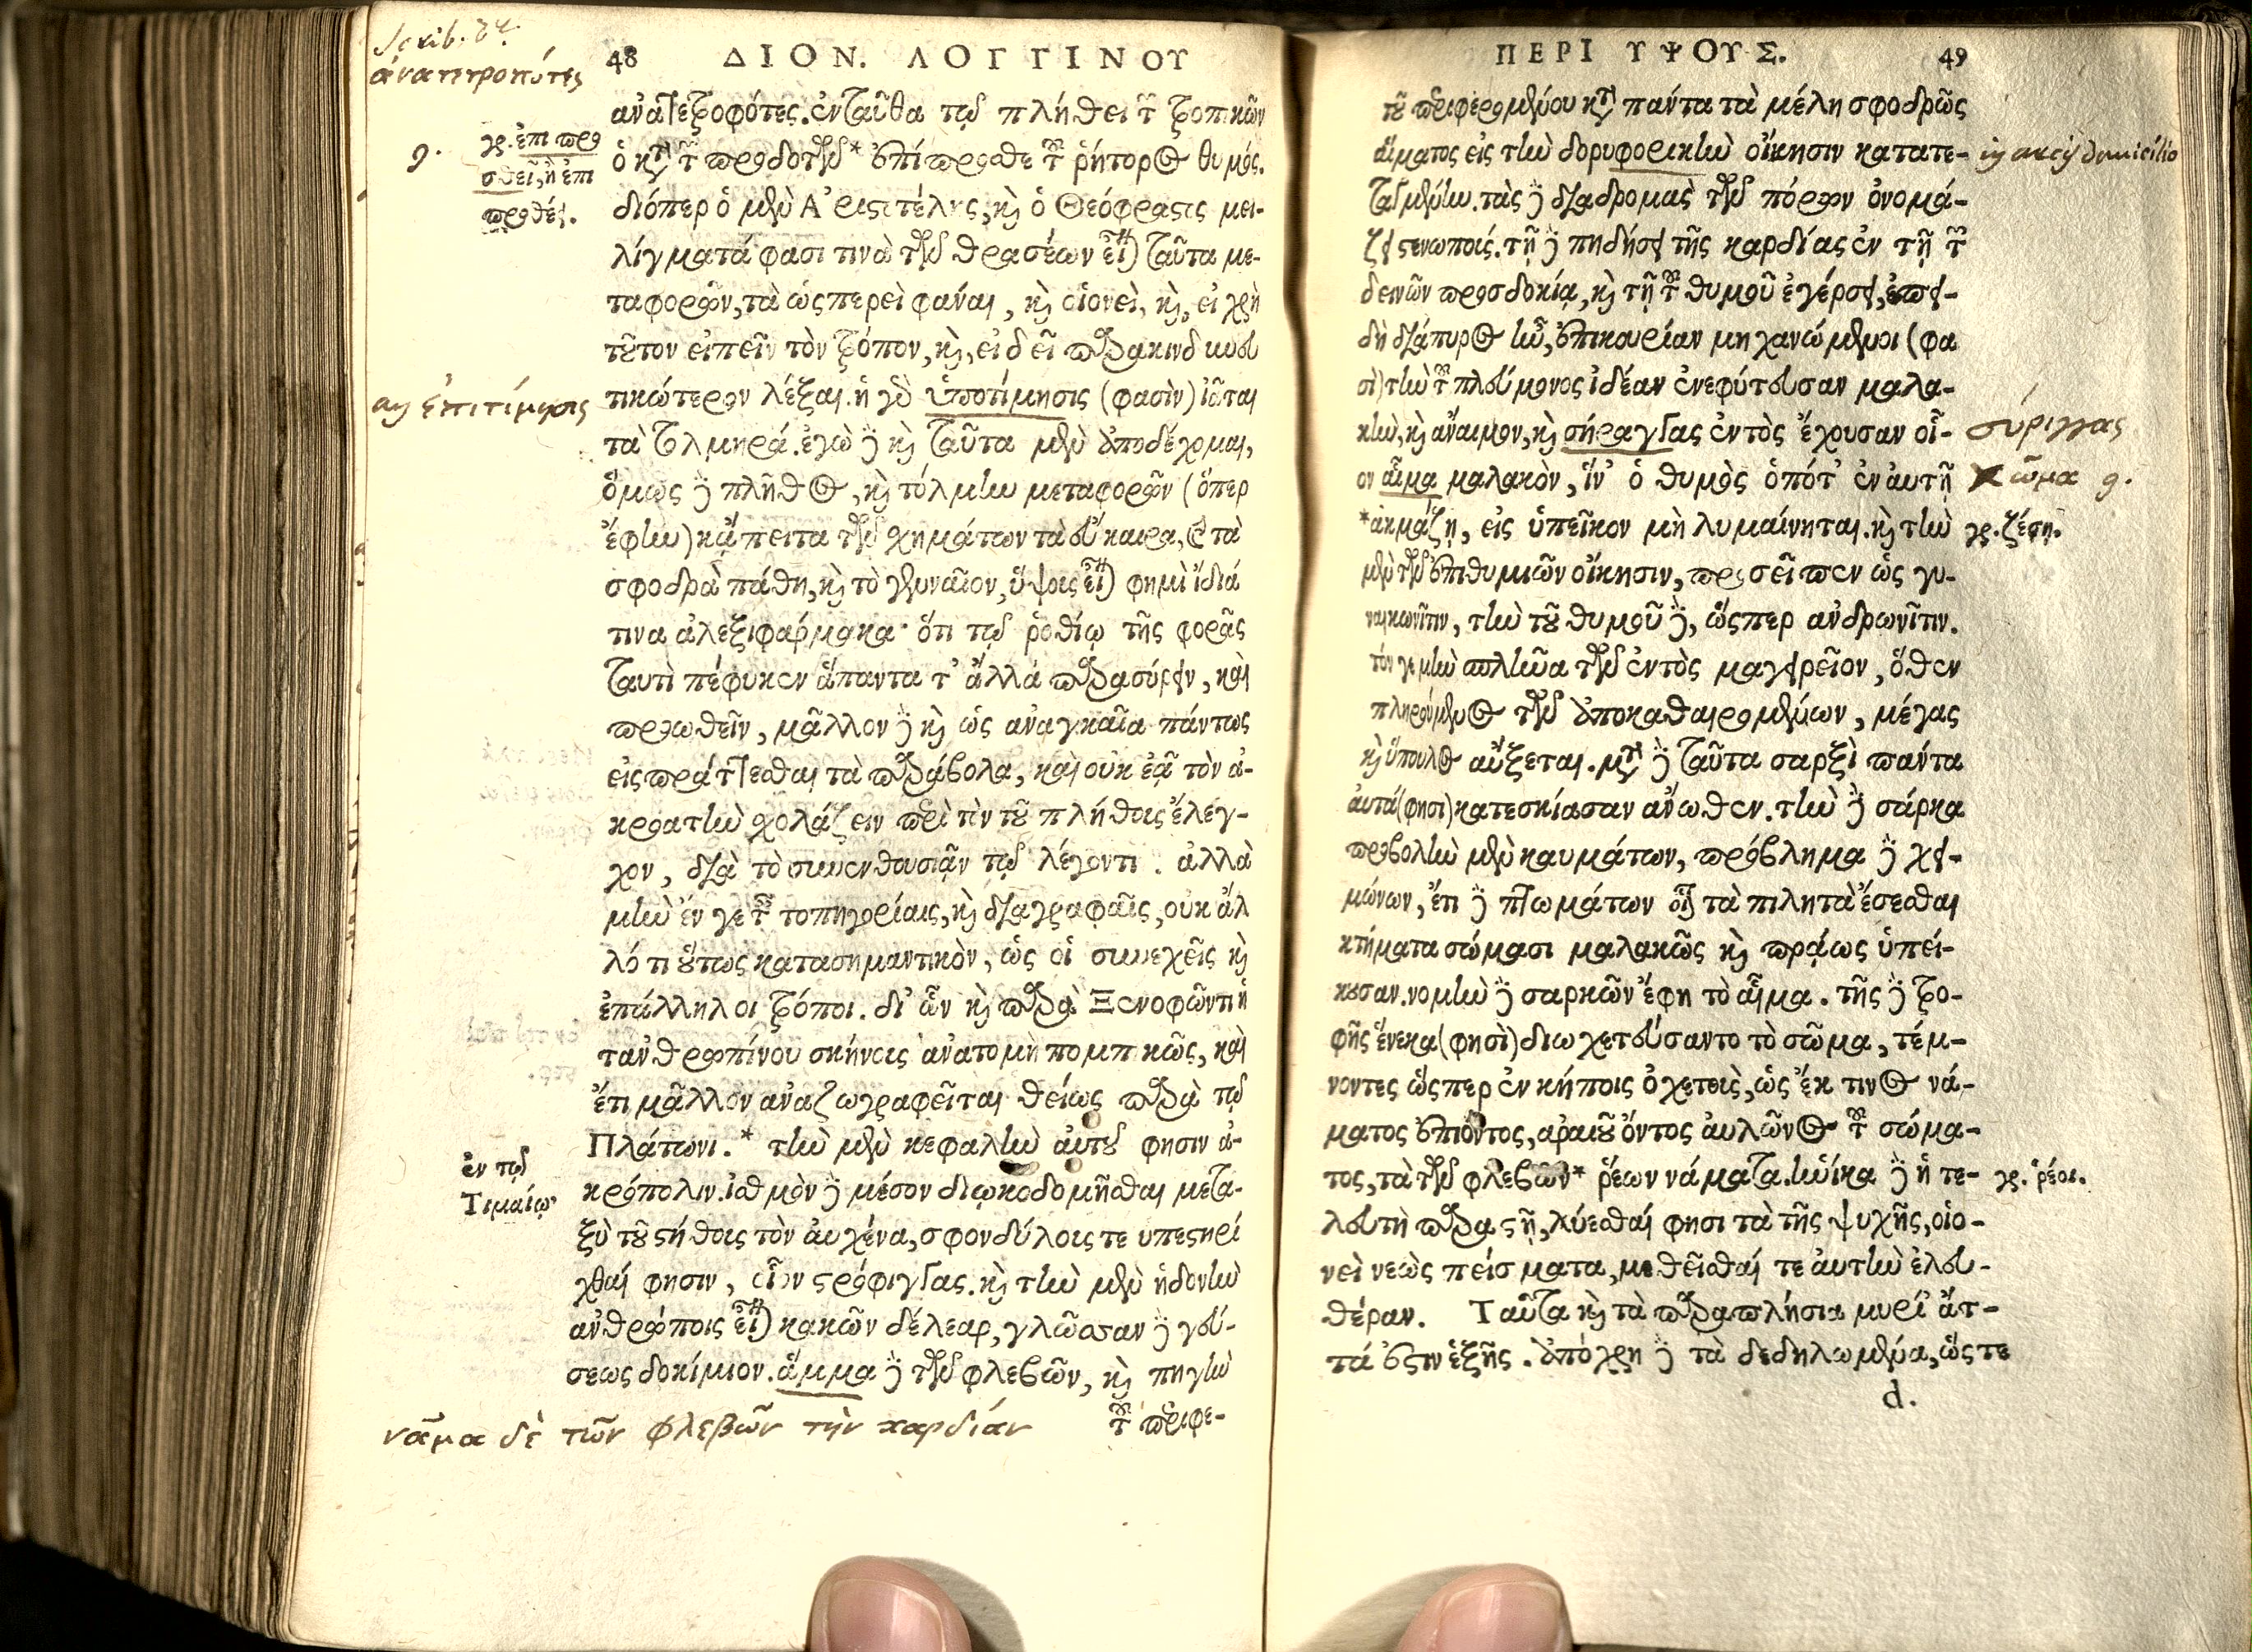 48 ΔΙΟΝ. ΛΟΓΓΙΝΟΥ
ἀνατετροφότες. ἐνταῦθα τῷ πλήθει τῶν τροπικῶν
ὁ κατὰ τῶν προδοτῶν* ἐπίπροσθε τοῦ ῥήτορος θυμός.
διόπερ ὁ μὲν Ἀριστοτέλης, καὶ ὁ Θεόφραστος μει-
λίγματά φασί τινα τῶν θρασέων εἶναι ταῦτα με-
ταφορῶν, τὰ ὡσπερεὶ φάναι, καὶ οἱονεὶ, καὶ, εἰ χρὴ
τοῦτον εἰπεῖν τὸν τρόπον, καὶ, εἰ δεῖ παρακινδυνευ
τικώτερον λέξαι. ἡ γὰρ ὑποτίμησις (φασὶν) ἰᾶται
τὰ τολμηρά. ἐγὼ δὲ καὶ ταῦτα μὲν ἀποδέχομαι,
ὅμως δὲ πλῆθος, καὶ τόλμην μεταφορῶν (ὅπερ
ἔφην) κἄπειτα τῶν σχημάτων τὰ εὔκαιρα, καὶ τὰ
σφοδρὰ πάθη, καὶ τὸ γενναῖον, ὕψους εἶναι φημὶ ἴδιά
τινα ἀλεξιφάρμακα· ὅτι τῷ ῥοθίῳ τῆς φορᾶς
ταυτὶ πέφυκεν ἅπαντα τ' ἄλλα παρασύρειν, καὶ
προωθεῖν, μᾶλλον δὲ καὶ ὡς ἀναγκαῖα πάντως
εἰσπράττεσθαι τὰ παράβολα, καὶ οὐκ ἐᾷ τὸν ἀ-
κροατὴν σχολάζειν περὶ τὸν τοῦ πλήθους ἔλεγ-
χον, διὰ τὸ συνενθουσιᾶν τῷ λέγοντι. ἀλλὰ
μὴν ἔν γε τοῖς τοπηγορίαις, καὶ διαγραφαῖς, οὐκ ἄλ
λό τι οὕτως κατασημαντικὸν, ὡς οἱ συνεχεῖς καὶ
ἐπάλληλοι τρόποι. δι' ὧν καὶ παρὰ Ξενοφῶντι ἡ
τἀνθρωπίνου σκήνους ἀνατομὴ πομπικῶς, καὶ
ἔτι μᾶλλον ἀναζωγραφεῖται θείως παρὰ τῷ
Πλάτωνι. * τὴν μὲν κεφαλὴν αὐτοῦ φησιν ἀ-
κρόπολιν. ἰσθμὸν δὲ μέσον διῳκοδομῆσθαι μετα-
ξὺ τοῦ στήθους τὸν αὐχένα, σφονδύλοις τε ὑπεστηρί
χθαί φησιν, οἷον στρόφιγγας. καὶ τὴν μὲν ἡδονὴν
ἀνθρώποις εἶναι κακῶν δέλεαρ, γλῶσσαν δὲ γεύ-
σεως δοκίμιον. ἅμμα δὲ τῶν φλεβῶν, καὶ πηγὴν
τοῦ περιφε-
ἀναπεπροκότες
γρ. ἐπίπρο
σθει, ἢ ἐπι
προθέσ.
ἐπιτίμησις
ἐν τῷ
Τιμαίῳ
νᾶμα δὲ τῶν φλεβῶν τὴν καρδίαν
ΠΕΡΙ ΥΨΟΥΣ. 49
τοῦ περιφερομένου κατὰ πάντα τὰ μέλη σφοδρῶς
αἵματος εἰς τὴν δορυφορικὴν οἴκησιν κατατε-
ταγμένην. τὰς δὲ διαδρομὰς τῶν πόρων ὀνομά-
ζει στενωπούς. τῇ δὲ πηδήσει τῆς καρδίας ἐν τῇ τῶν
δεινῶν προσδοκίᾳ, καὶ τῇ τοῦ θυμοῦ ἐγέρσει, ἐπει-
δὴ διάπυρος ἦν, ἐπικουρίαν μηχανώμενοι (φα
σὶ) τὴν τοῦ πλεύμονος ἰδέαν ἐνεφύτευσαν μαλα-
κὴν, καὶ ἄναιμον, καὶ σήραγγας ἐντὸς ἔχουσαν οἷ-
ον αἷμα μαλακὸν, ἵν' ὁ θυμὸς ὁπότ' ἐν αὐτῇ
*ἀκμάζῃ, εἰς ὑπεῖκον μὴ λυμαίνηται. καὶ τὴν
μὲν τῶν ἐπιθυμιῶν οἴκησιν, προσεῖπεν ὡς γυ-
ναικωνῖτιν, τὴν τοῦ θυμοῦ δὲ, ὥσπερ ἀνδρωνῖτιν.
τόν γε μὴν σπλῆνα τῶν ἐντὸς μαγειρεῖον, ὅθεν
πληρούμενος τῶν ἀποκαθαιρομένων, μέγας
καὶ ὕπουλος αὔξεται. μετὰ δὲ ταῦτα σαρξὶ πάντα
αὐτά (φησι) κατεσκίασαν ἄνωθεν. τὴν δὲ σάρκα
προβολὴν μὲν καυμάτων, πρόβλημα δὲ χει-
μώνων, ἔτι δὲ πτωμάτων οἷον τὰ πιλητὰ ἔσεσθαι
κτήματα σώμασι μαλακῶς καὶ πράως ὑπεί-
κουσαν. νομὴν δὲ σαρκῶν ἔφη τὸ αἷμα. τῆς δὲ τρο-
φῆς ἕνεκα (φησὶ) διωχετεύσαντο τὸ σῶμα, τέμ-
νοντες ὥσπερ ἐν κήποις ὀχετοὺς, ὡς ἔκ τινος νά-
ματος ἐπιόντος, ἀραιοῦ ὄντος αὐλῶνος τοῦ σώμα-
τος, τὰ τῶν φλεβῶν* ῥέων νάματα. ἡνίκα δὲ ἡ τε-
λευτὴ παραστῇ, λύεσθαί φησι τὰ τῆς ψυχῆς, οἱο-
νεὶ νεὼς πείσματα, μεθεῖσθαί τε αὐτὴν ἐλευ-
θέραν. Ταῦτα καὶ τὰ παραπλήσια μυρί' ἄτ-
τά ἐστιν ἑξῆς. ἀπόχρη δὲ τὰ δεδηλωμένα, ὥς τε
d.
σύριγγας
σῶμα
γρ. ζέσῃ.
γρ. ῥέοι.